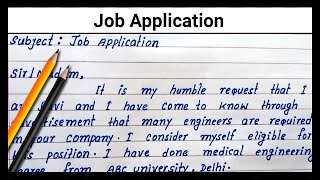 Job Application
Subject: Job Application
Sir/Madam,
It is my humble request that I
am Ravi and I have come to know through
advertisement that many engineers are required
in your company. I consider myself eligible for
this position. I have done medical engineering
degree from ABC university, Delhi.